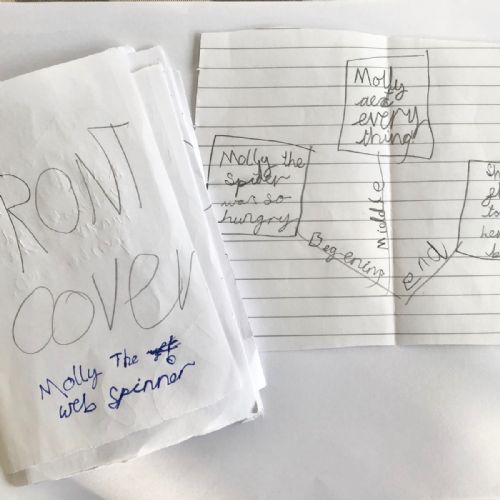 RONT
cover
Molly The
web Spinner
Molly
aet
every
thing
Molly the
Spider
was so
hungry
Begening
Middle
end